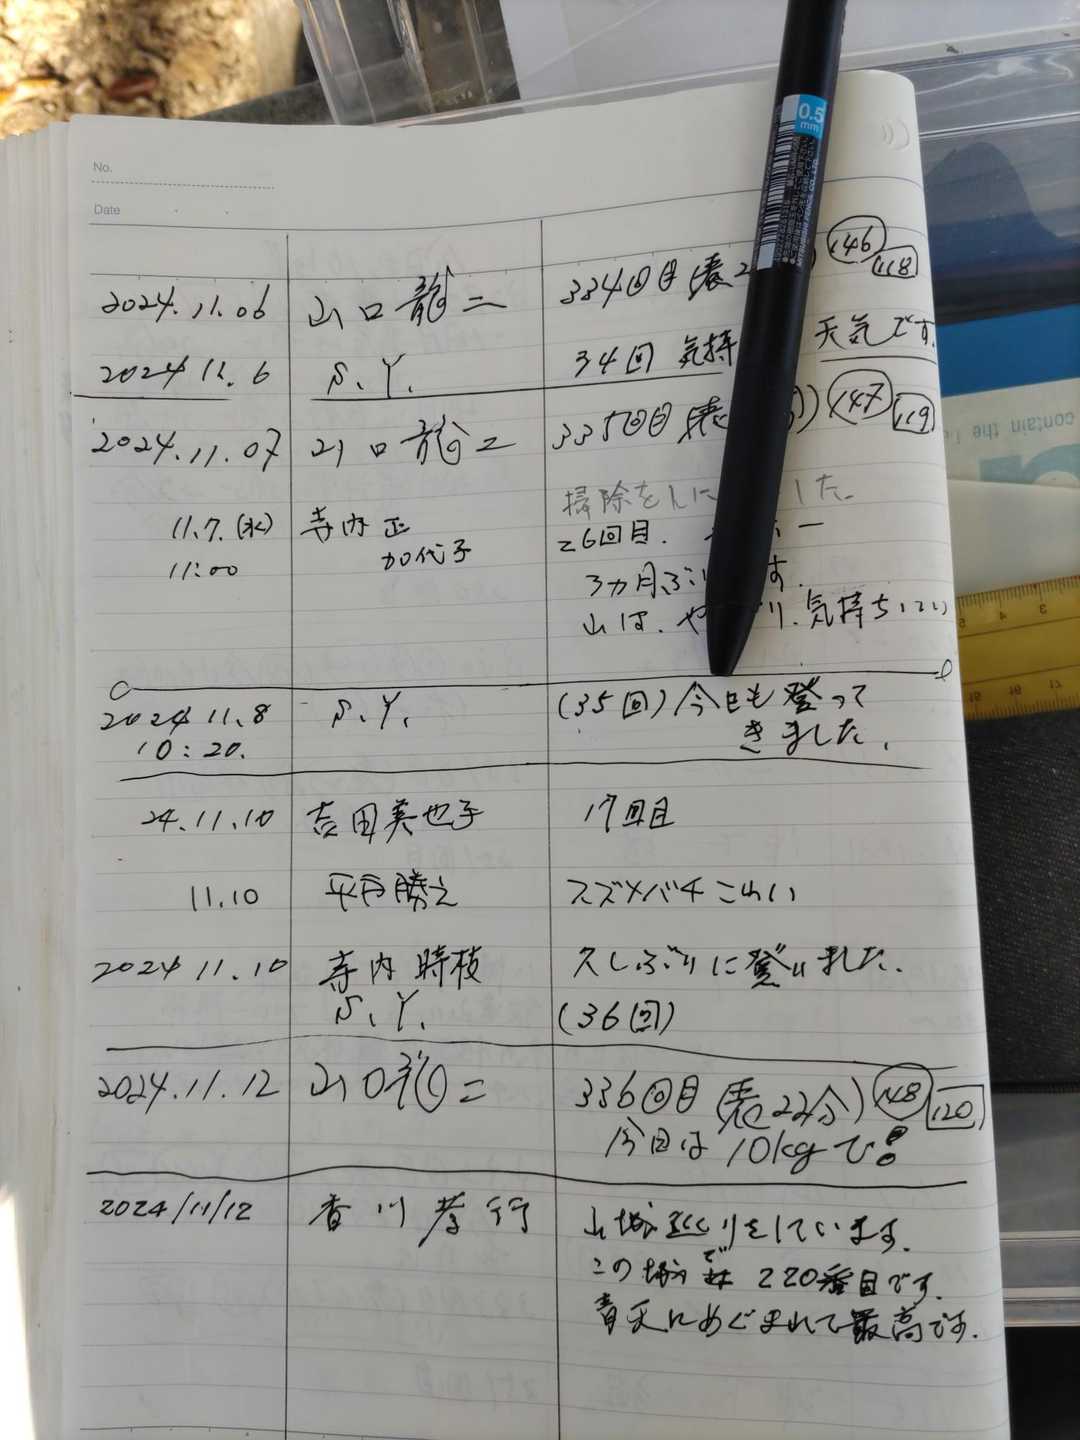 No.
Date
0.5
mm
2024.11.06 山口龍二 334回目(表2 146 118
2024 11.6 S.Y. 34回 気持 天気です。
2024.11.07 山口龍二 335回目(表 ) 147 119
掃除を した。
11.7.(水) 寺内 正 26回目.
11:00 加代子 3ヵ月ぶり す.
山は、や り、気持ちいい
2024 11.8 S.Y. (35回)今日も登って
10:20. きました。
24.11.10 吉田美也子 17回目
11.10 平戸勝之 スズメバチこわい
2024 11.10 寺内時枝 久しぶりに登りました.
S.Y. (36回)
2024.11.12 山口 二 336回目(表22分) 148 120
今日は10kgで!
2024/11/12 香川孝行 山城巡りをしています.
この城で 220番目です.
青天にめぐまれて最高です.
contain the